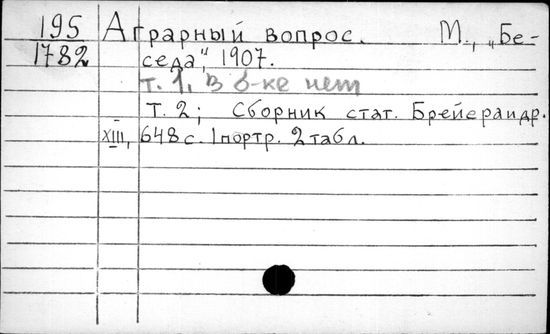 195 Аграрный вопрос. М., „Бе-
1782 седа", 1907.
т. 1, в б-ке нет
Т. 2; Сборник стат. Брейераидр.
XIII, 648 с. 1 портр. 2 табл.